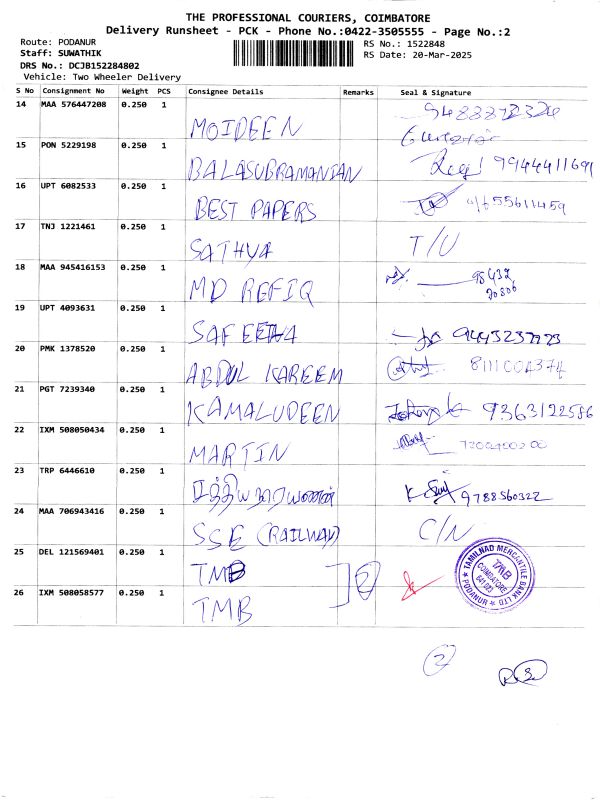 THE PROFESSIONAL COURIERS, COIMBATORE
Delivery Runsheet - PCK - Phone No.:0422-3505555 - Page No.:2
Route: PODANUR
Staff: SUWATHIK
DRS No.: DCJB152284802
Vehicle: Two Wheeler Delivery
RS No.: 1522848
RS Date: 20-Mar-2025
S No Consignment No Weight PCS Consignee Details Remarks Seal & Signature
14 MAA 576447208 0.250 1 MOIDEEN
15 PON 5229198 0.250 1 BALASUBRAMANIAN 9944411691
16 UPT 6082533 0.250 1 BEST PAPERS
17 TNJ 1221461 0.250 1 SATHYA T/U
18 MAA 945416153 0.250 1 MD REFIQ
19 UPT 4093631 0.250 1
20 PMK 1378520 0.250 1 ABDUL KAREEM
21 PGT 7239340 0.250 1 KAMALUDEEN 9363122586
22 IXM 508050434 0.250 1 MARTIN
23 TRP 6446610 0.250 1 9788560322
24 MAA 706943416 0.250 1 SSE (RAILWAY) C/N
25 DEL 121569401 0.250 1 TMB 2
26 IXM 508058577 0.250 1 TMB
TAMILNAD MERCANTILE BANK LTD
TMB
COIMBATORE
PODANUR
2